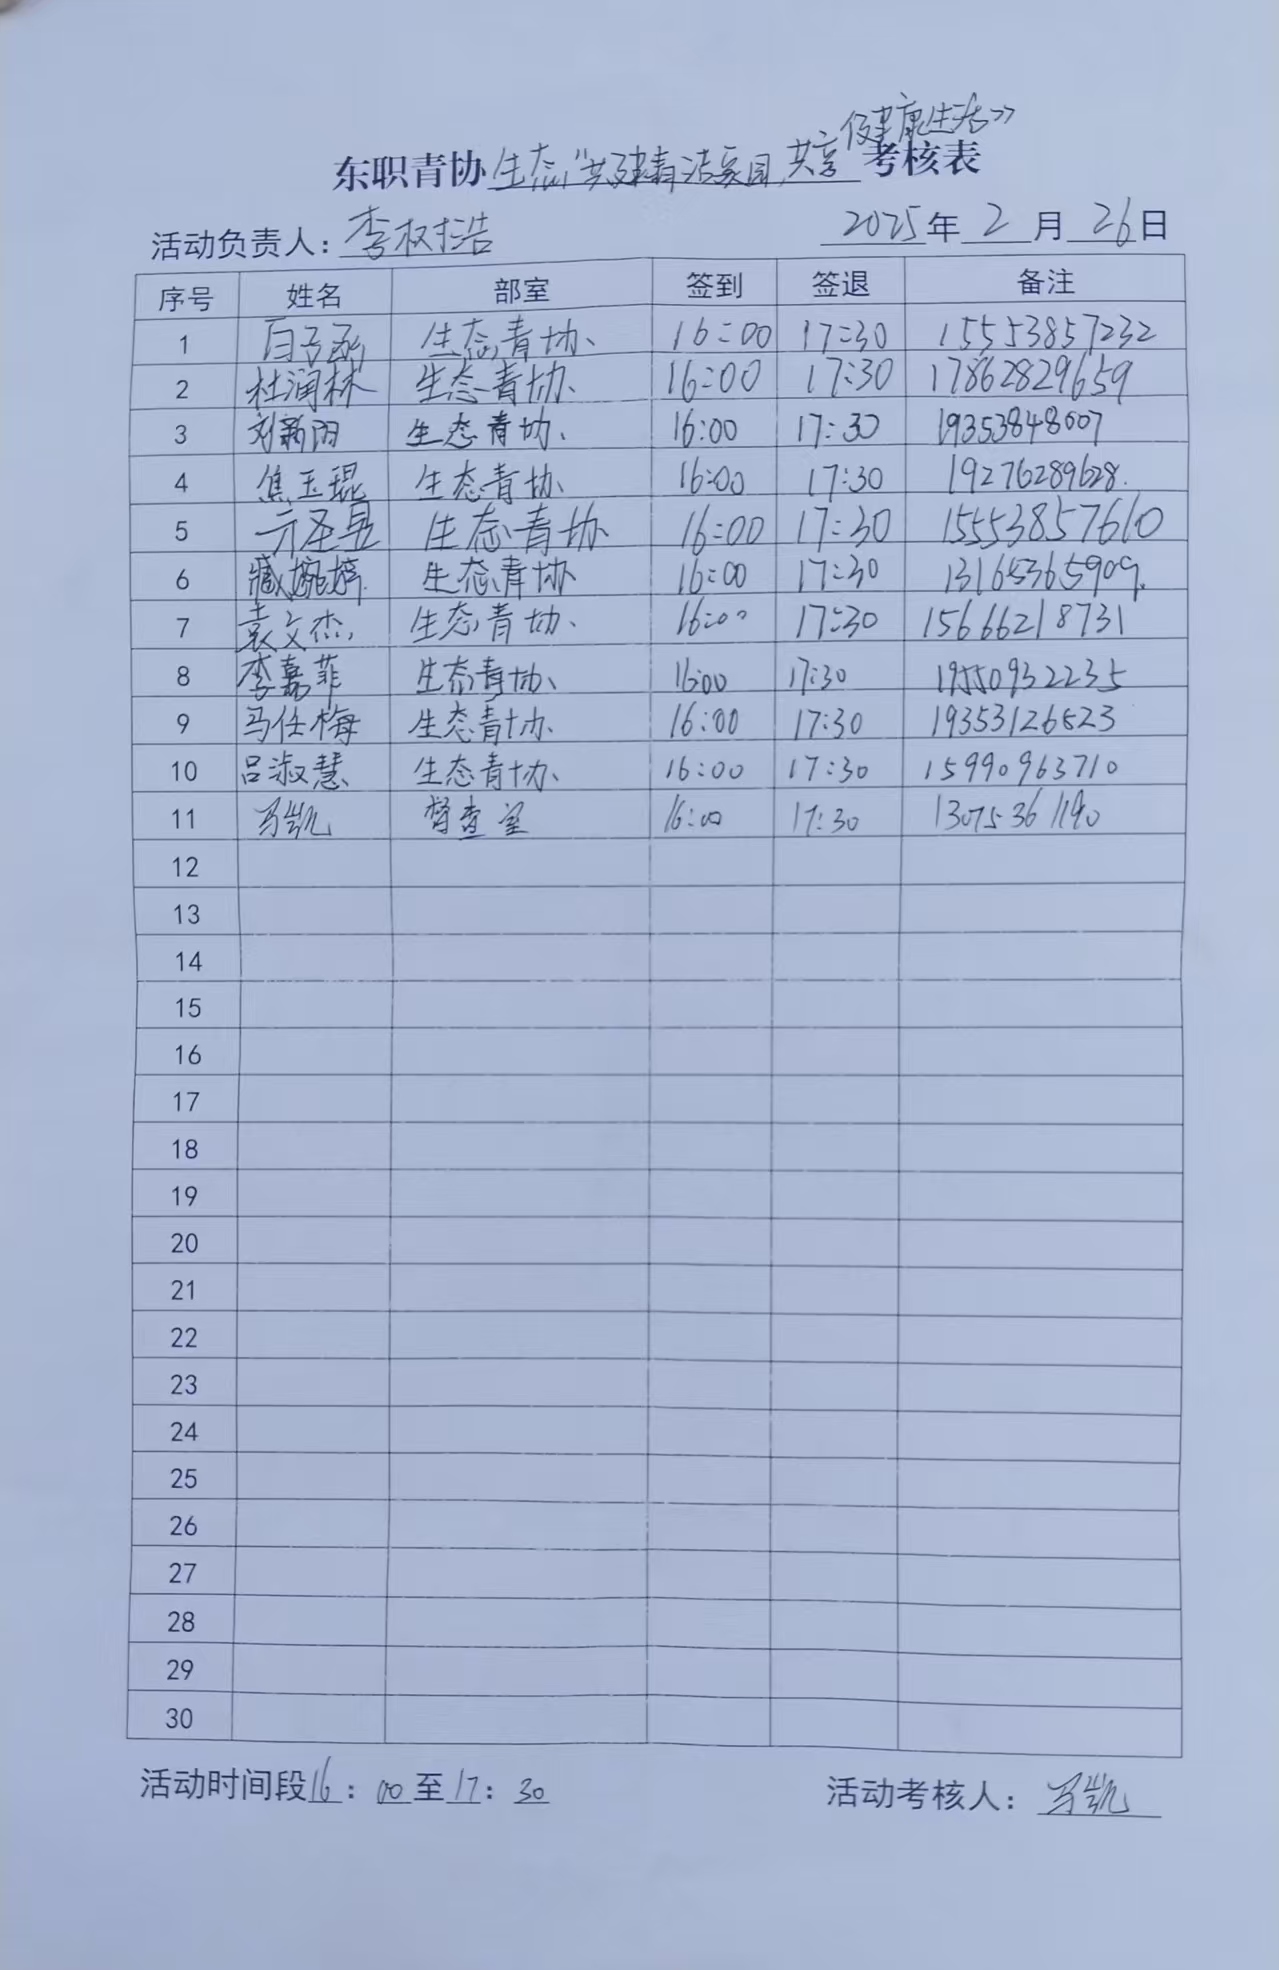 健康生活》
东职青协 生态"共建清洁家园,共享 考核表
活动负责人: 李权浩 2025年 2 月 26日
序号 姓名 部室 签到 签退 备注
1 白子函 生态青协、 16:00 17:30 15553857232
2 杜润林 生态青协、 16:00 17:30 17862829659
3 刘新阳 生态青协、 16:00 17:30 19353848607
4 焦玉琨 生态青协、 16:00 17:30 19276289628.
5 亓圣昱 生态青协 16:00 17:30 15553857610
6 臧婉婷. 生态青协 16:00 17:30 13165365909.
7 袁文杰, 生态青协、 16:00 17:30 15666218731
8 李嘉菲 生态青协、 16:00 17:30 19550932235
9 马任梅 生态青协. 16:00 17:30 19353126523
10 吕淑慧 生态青协、 16:00 17:30 15990963710
11 马凯 督查室 16:00 17:30 13075361190
12
13
14
15
16
17
18
19
20
21
22
23
24
25
26
27
28
29
30
活动时间段16: 00至17: 30 活动考核人: 马凯